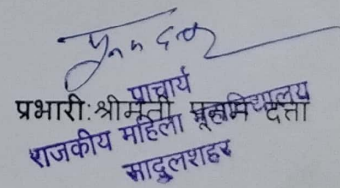 प्रभारी:श्रीमती पूनम दत्ता
प्राचार्य
राजकीय महिला महाविद्यालय
सादुलशहर